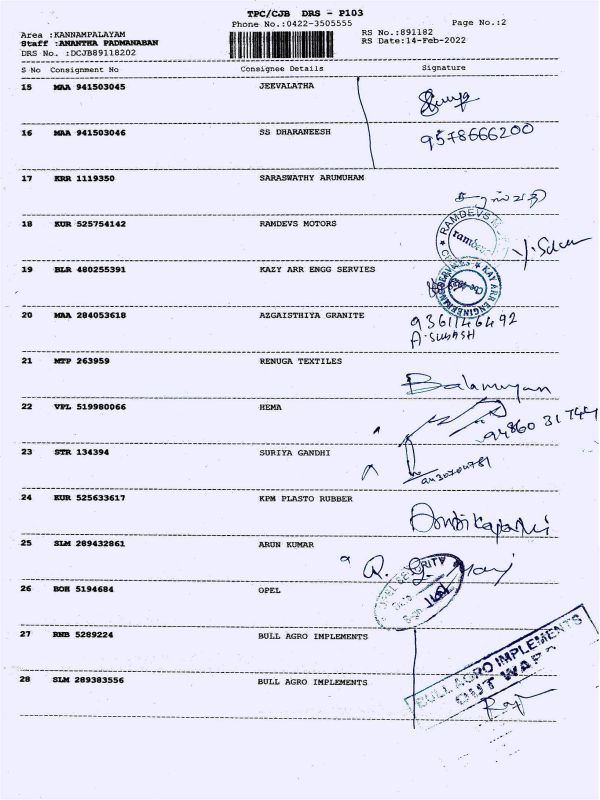 TPC/CJB DRS - P103
Phone No.:0422-3505555
Page No.:2
Area :KANNAMPALAYAM
RS No.:891182
Staff :ANANTHA PADMANABAN
RS Date:14-Feb-2022
DRS No. :DCJB89118202
S No Consignment No Consignee Details Signature
15 MAA 941503045 JEEVALATHA
16 MAA 941503046 SS DHARANEESH
9578666200
17 KRR 1119350 SARASWATHY ARUMUHAM
சரஸ்வதி
18 KUR 525754142 RAMDEVS MOTORS
RAMDEVS
ramdevs
19 BLR 480255391 KAZY ARR ENGG SERVIES
KAY ARR ENGINEERING SERVICES
20 MAA 284053618 AZGAISTHIYA GRANITE
9361146492
A.SUBASH
21 MTP 263959 RENUGA TEXTILES
Balamurugan
22 VPL 519980066 HEMA
94860 31744
23 STR 134394 SURIYA GANDHI
24 KUR 525633617 KPM PLASTO RUBBER
25 SLM 289432861 ARUN KUMAR
26 BOH 5194684 OPEL
OPEL SECURITY
27 RNB 5289224 BULL AGRO IMPLEMENTS
28 SLM 289383556 BULL AGRO IMPLEMENTS
BULL AGRO IMPLEMENTS
OUT WARD